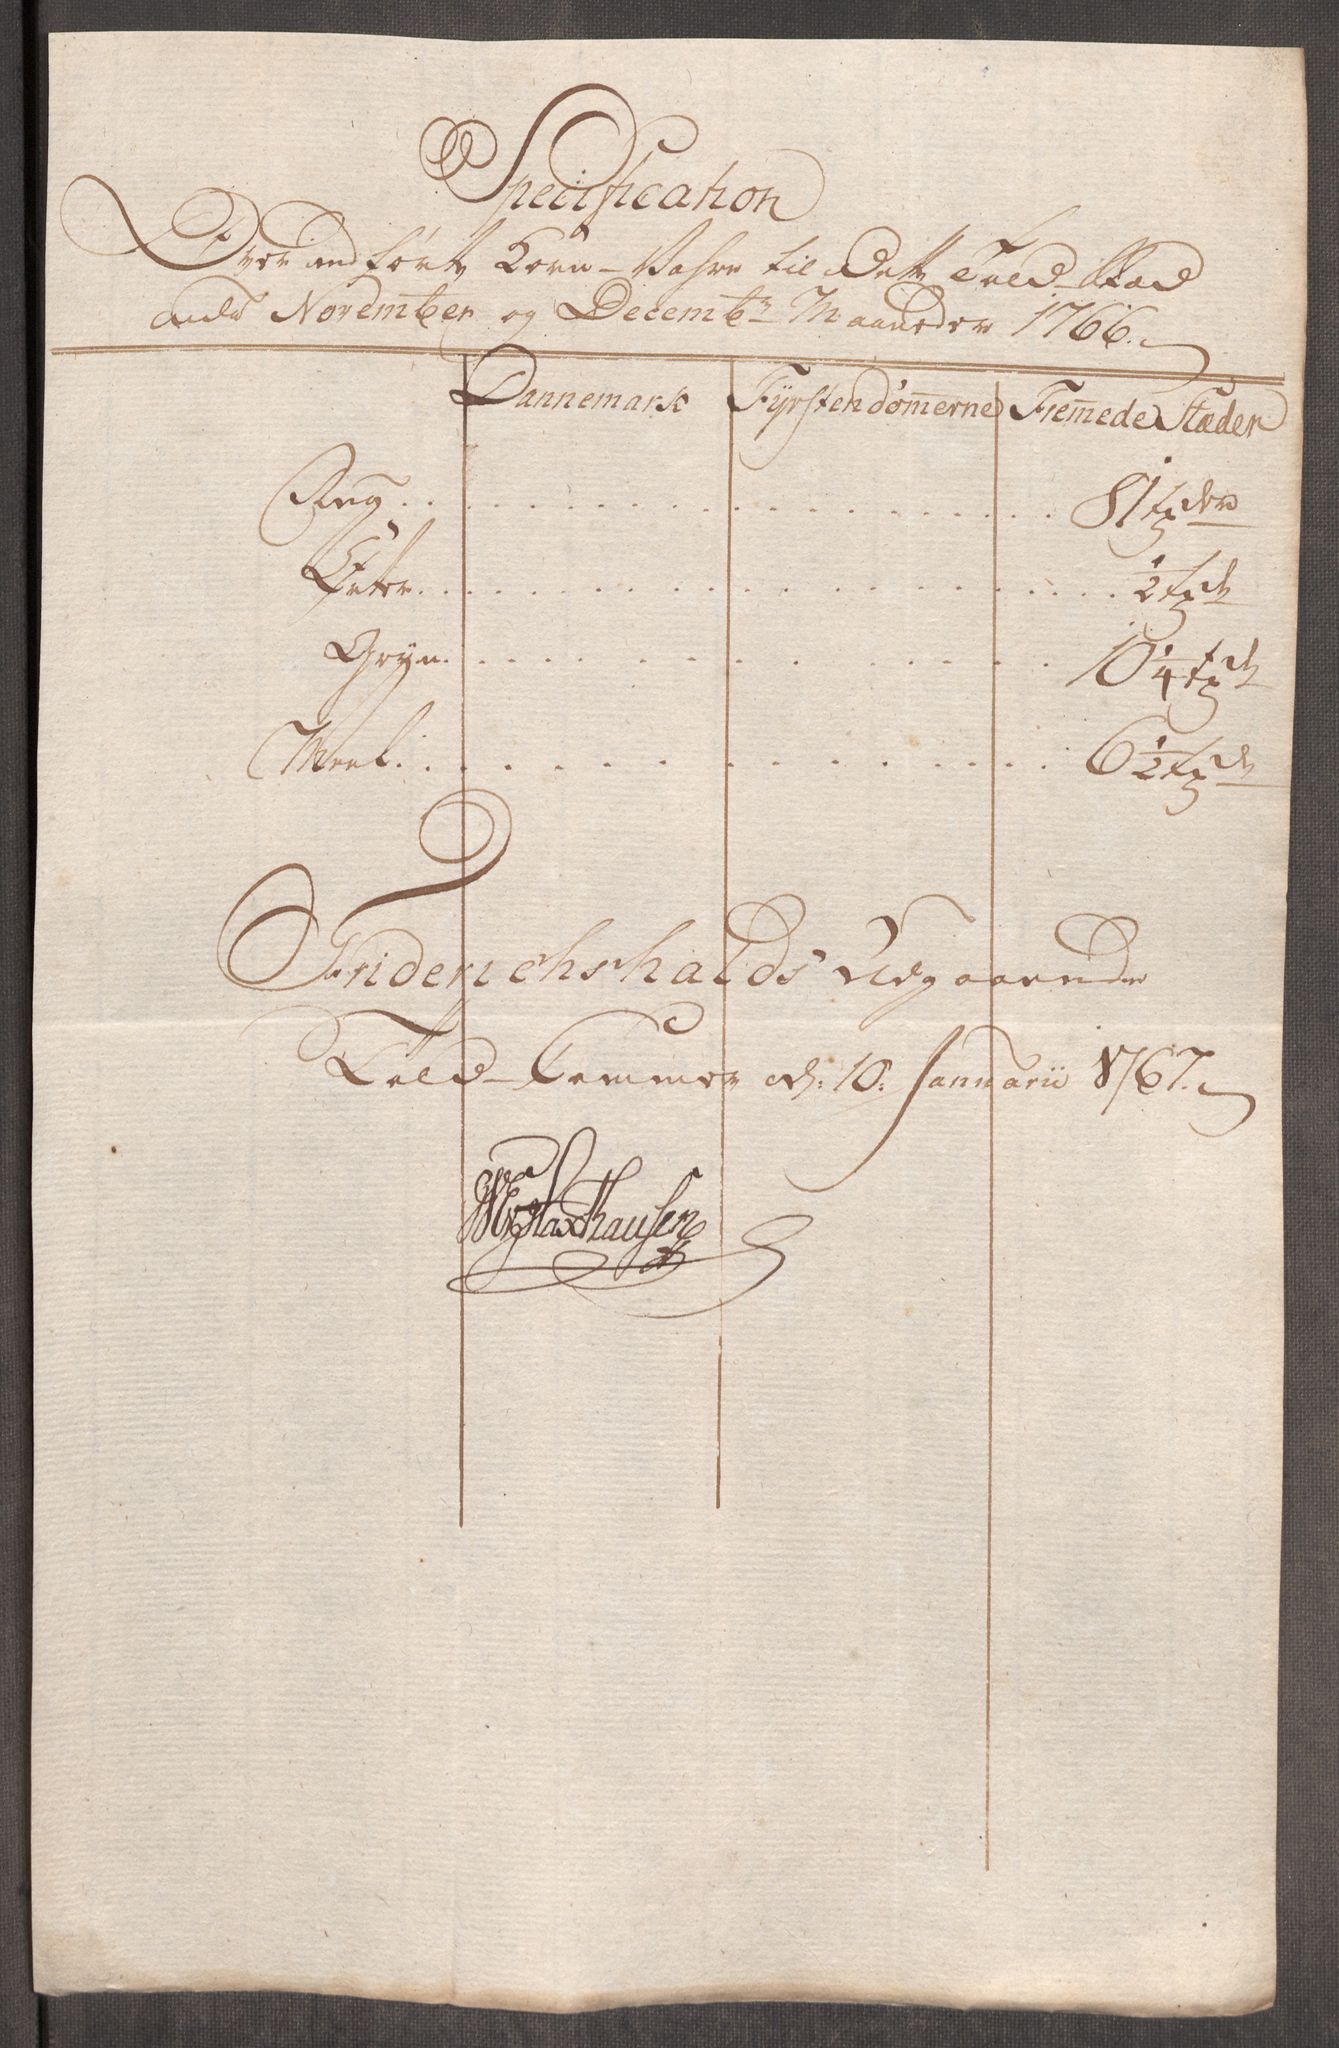 Specification
Over indførte Korn-Vahre til dette Told-Stæd
udi November og Decembr Maaneder 1766.
Dannemark Fÿrstendom̄erne Frem̄ede Stæder
Rug 81 tdr
Erter ½ td
Gryn 10¼ td
Meel 6½ td
Friderichshalds udgaaende
Told-Kammer d: 10: Januarii 1767.